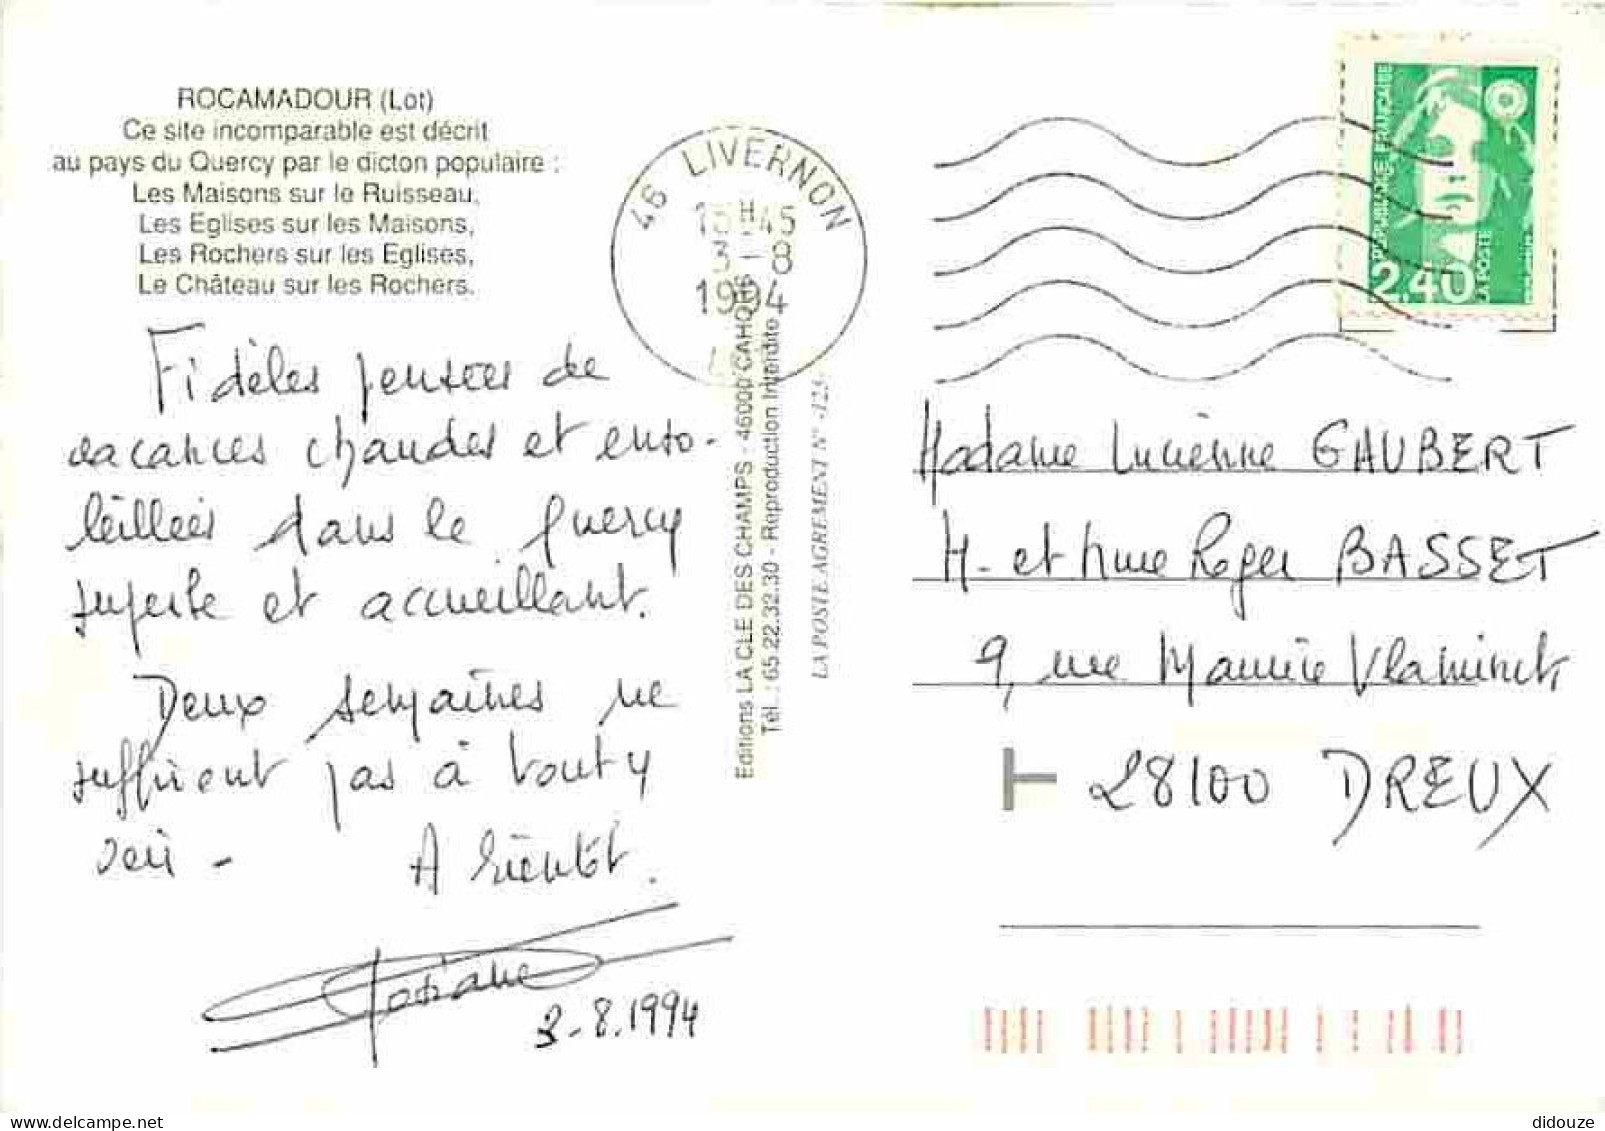 ROCAMADOUR (Lot)
Ce site incomparable est décrit
au pays du Quercy par le dicton populaire :
Les Maisons sur le Ruisseau,
Les Eglises sur les Maisons,
Les Rochers sur les Eglises,
Le Château sur les Rochers.
Fidèles pensées de
vacances chaudes et enso-
leillées dans le Quercy
superbe et accueillant.
Deux semaines ne
suffisent pas à tout y
voir - A bientôt.
3-8.1994
Editions LA CLE DES CHAMPS - 46000 CAHORS
Tél. : 65.22.32.30 - Reproduction Interdite
LA POSTE AGREMENT N°
46 LIVERNON
H 45
3-8
1994
REPUBLIQUE FRANÇAISE
2,40
LA POSTE
Madame Lucienne GAUBERT
M- et Mme Roger BASSET
9, rue Maurice Vlaminck
28100 DREUX
didouze